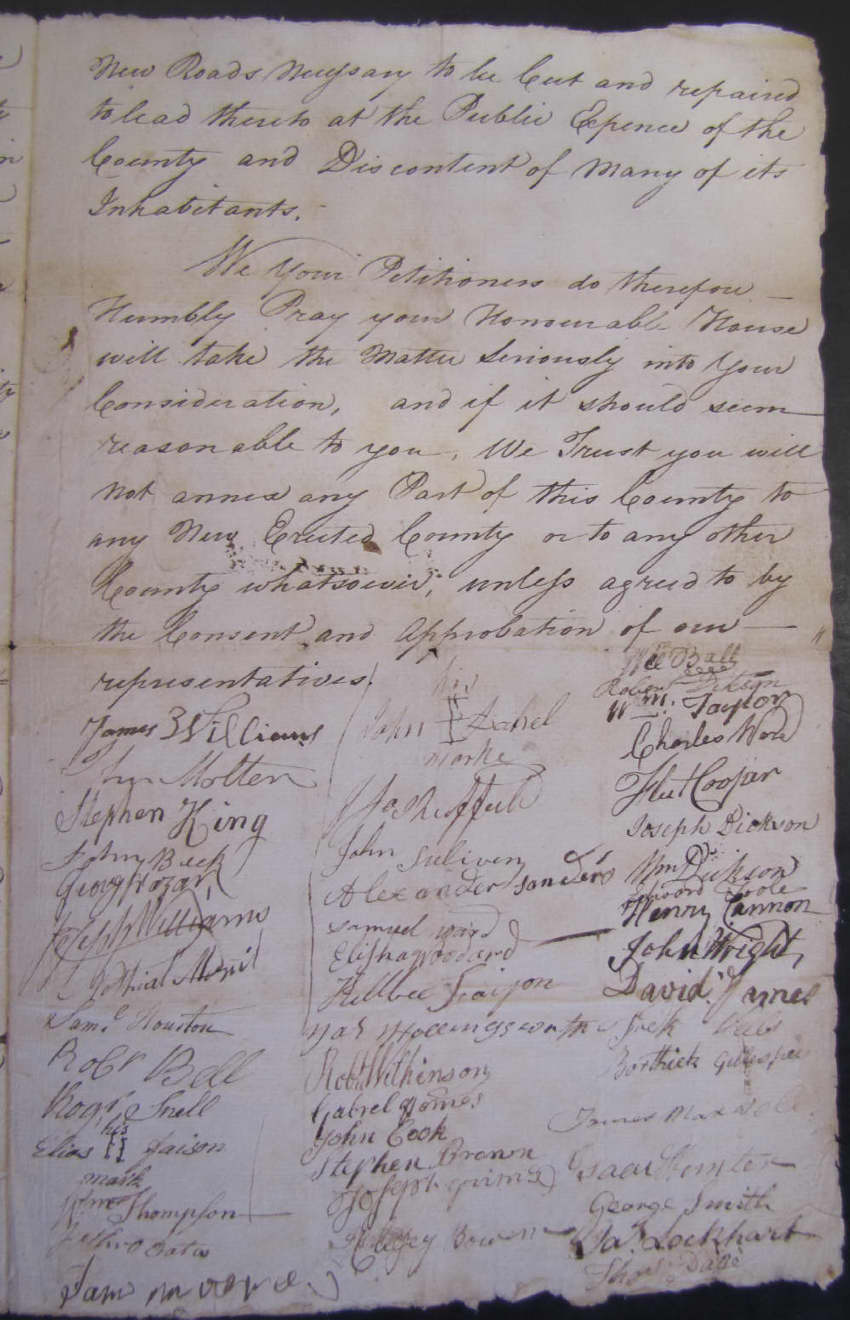 New Roads Necessary to be Cut and repaired
to lead thereto at the Public Expence of the
County and Discontent of Many of its
Inhabitants.
We Your Petitioners do therefore
Humbly Pray your Honourable House
will take the Matter Seriously into Your
Consideration, and if it should seem
reasonable to you, We Trust you will
not annex any Part of this County to
any New Erected County or to any other
County whatsoever, unless agreed to by
the Consent and Approbation of our
representatives.
James Williams
Molten
Stephen King
John Beck
Joseph Williams
Saml Houston
Robt Bell
Robt Snell
Elias his Faison
mark
Thompson
Sam
his
John
marke
John Suliven
Alexander Sanders
Samuel Ward
Elisha Woodard
Kilbee Faison
Hollingsworth
Robt Wilkinson
Gabrel Homes
John Cook
Stephen Brown
Joseph Grimes
Bowen
Wm Ball
Robert Dickson
Wm. Taylor
Charles Ward
Fleet Cooper
Joseph Dickson
Wm Dickson
Henry Cannon
John Wright
David James
Borthick Gillespie
James Maxwell
Isaac Hunter
George Smith
Jas Lockhart